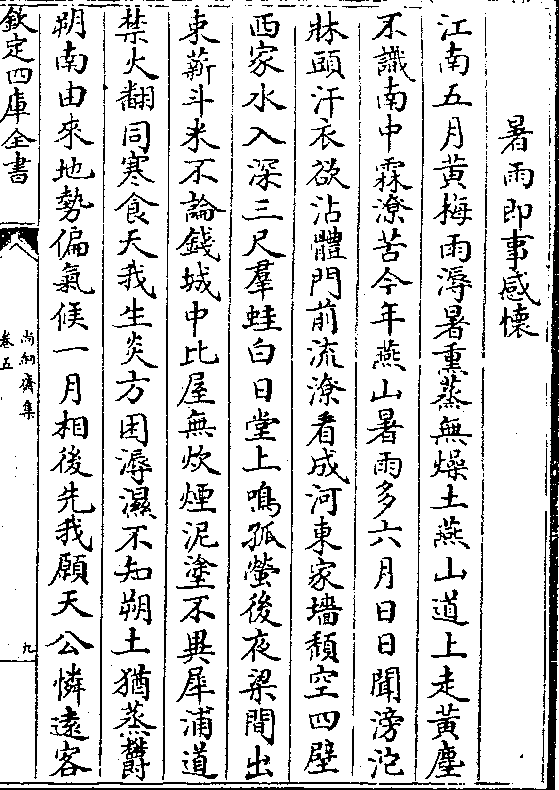 暑雨即事感懷
江南五月黄梅雨溽暑熏蒸無燥土燕山道上走黄塵
不識南中霖潦苦今年燕山暑雨多六月日日聞滂沱
牀頭汗衣欲沾體門前流潦看成河東家墻頹空四壁
西家水入深三尺羣蛙白日堂上鳴孤螢後夜梁間出
束薪斗米不論錢城中比屋無炊煙泥塗不異犀浦道
禁火翻同寒食天我生炎方困溽濕不知朔土猶蒸欝
朔南由來地勢偏氣候一月相後先我願天公憐遠客
欽定四庫全書
尚絅齋集
卷五
九